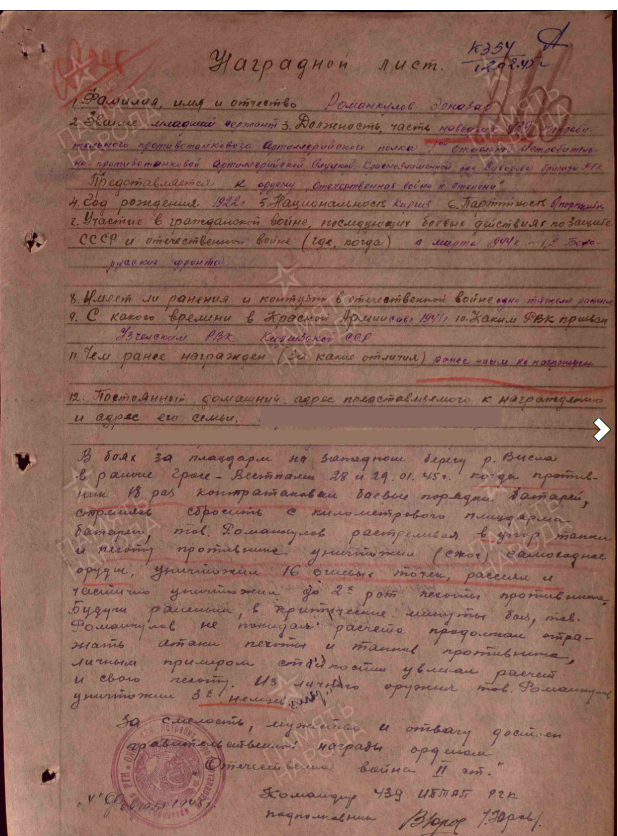 К354
Наградной лист.
1. Фамилия, имя и отчество Романкулов
2. Звание младший сержант 3. Должность, часть наводчик 439
тельного противотанкового Артиллерийского полка
но-противотанковой Артиллерийской Слуцкой, Краснознаменной орд. Суворова бригады РГК
Представляется к ордену „Отечественная война II степени"
4. Год рождения 1922г. 5. Национальность киргиз 6. Партийность
7. Участие в гражданской войне, последующих боевых действиях по защите
СССР и отечественной войне (где, когда) с марта 1944г – 1, 2 Бело-
русские фронта.
8. Имеет ли ранения и контузии в отечественной войне одно тяжелое ранение
9. С какого времени в Красной Армии с 1941г. 10. Каким РВК призван
Узгенским РВК Киргизской ССР
11. Чем ранее награжден (за какие отличия) ранее ничем не награжден
12. Постоянный домашний адрес представляемого к награждению
и адрес его семьи.
В боях за плацдарм на западном берегу р. Висла
в районе Гросс-Вестпали 28 и 29.01.45г. когда против-
ник 18 раз контратаковал боевые порядки батарей,
стремясь сбросить с километрового плацдарма
батарею тов. Романкулов расстреливая в упор танки
и пехоту противника уничтожил (сжег) самоходное
орудие, уничтожил 16 огневых точек, рассеял и
частично уничтожил до 2х рот пехоты противника.
Будучи раненым, в критические минуты боя, тов.
Романкулов не покидая расчета продолжал отра-
жать атаки пехоты и танков противника,
личным примером стойкости увлекал расчет
и свою пехоту. Из личного оружия тов. Романкулов
уничтожил 3х немцев.
За смелость, мужество и отвагу достоин
правительственной награды орденом
„Отечественная война II ст."
Командир 439 ИПТАП РГК
"4" Февраля 1945г. подполковник